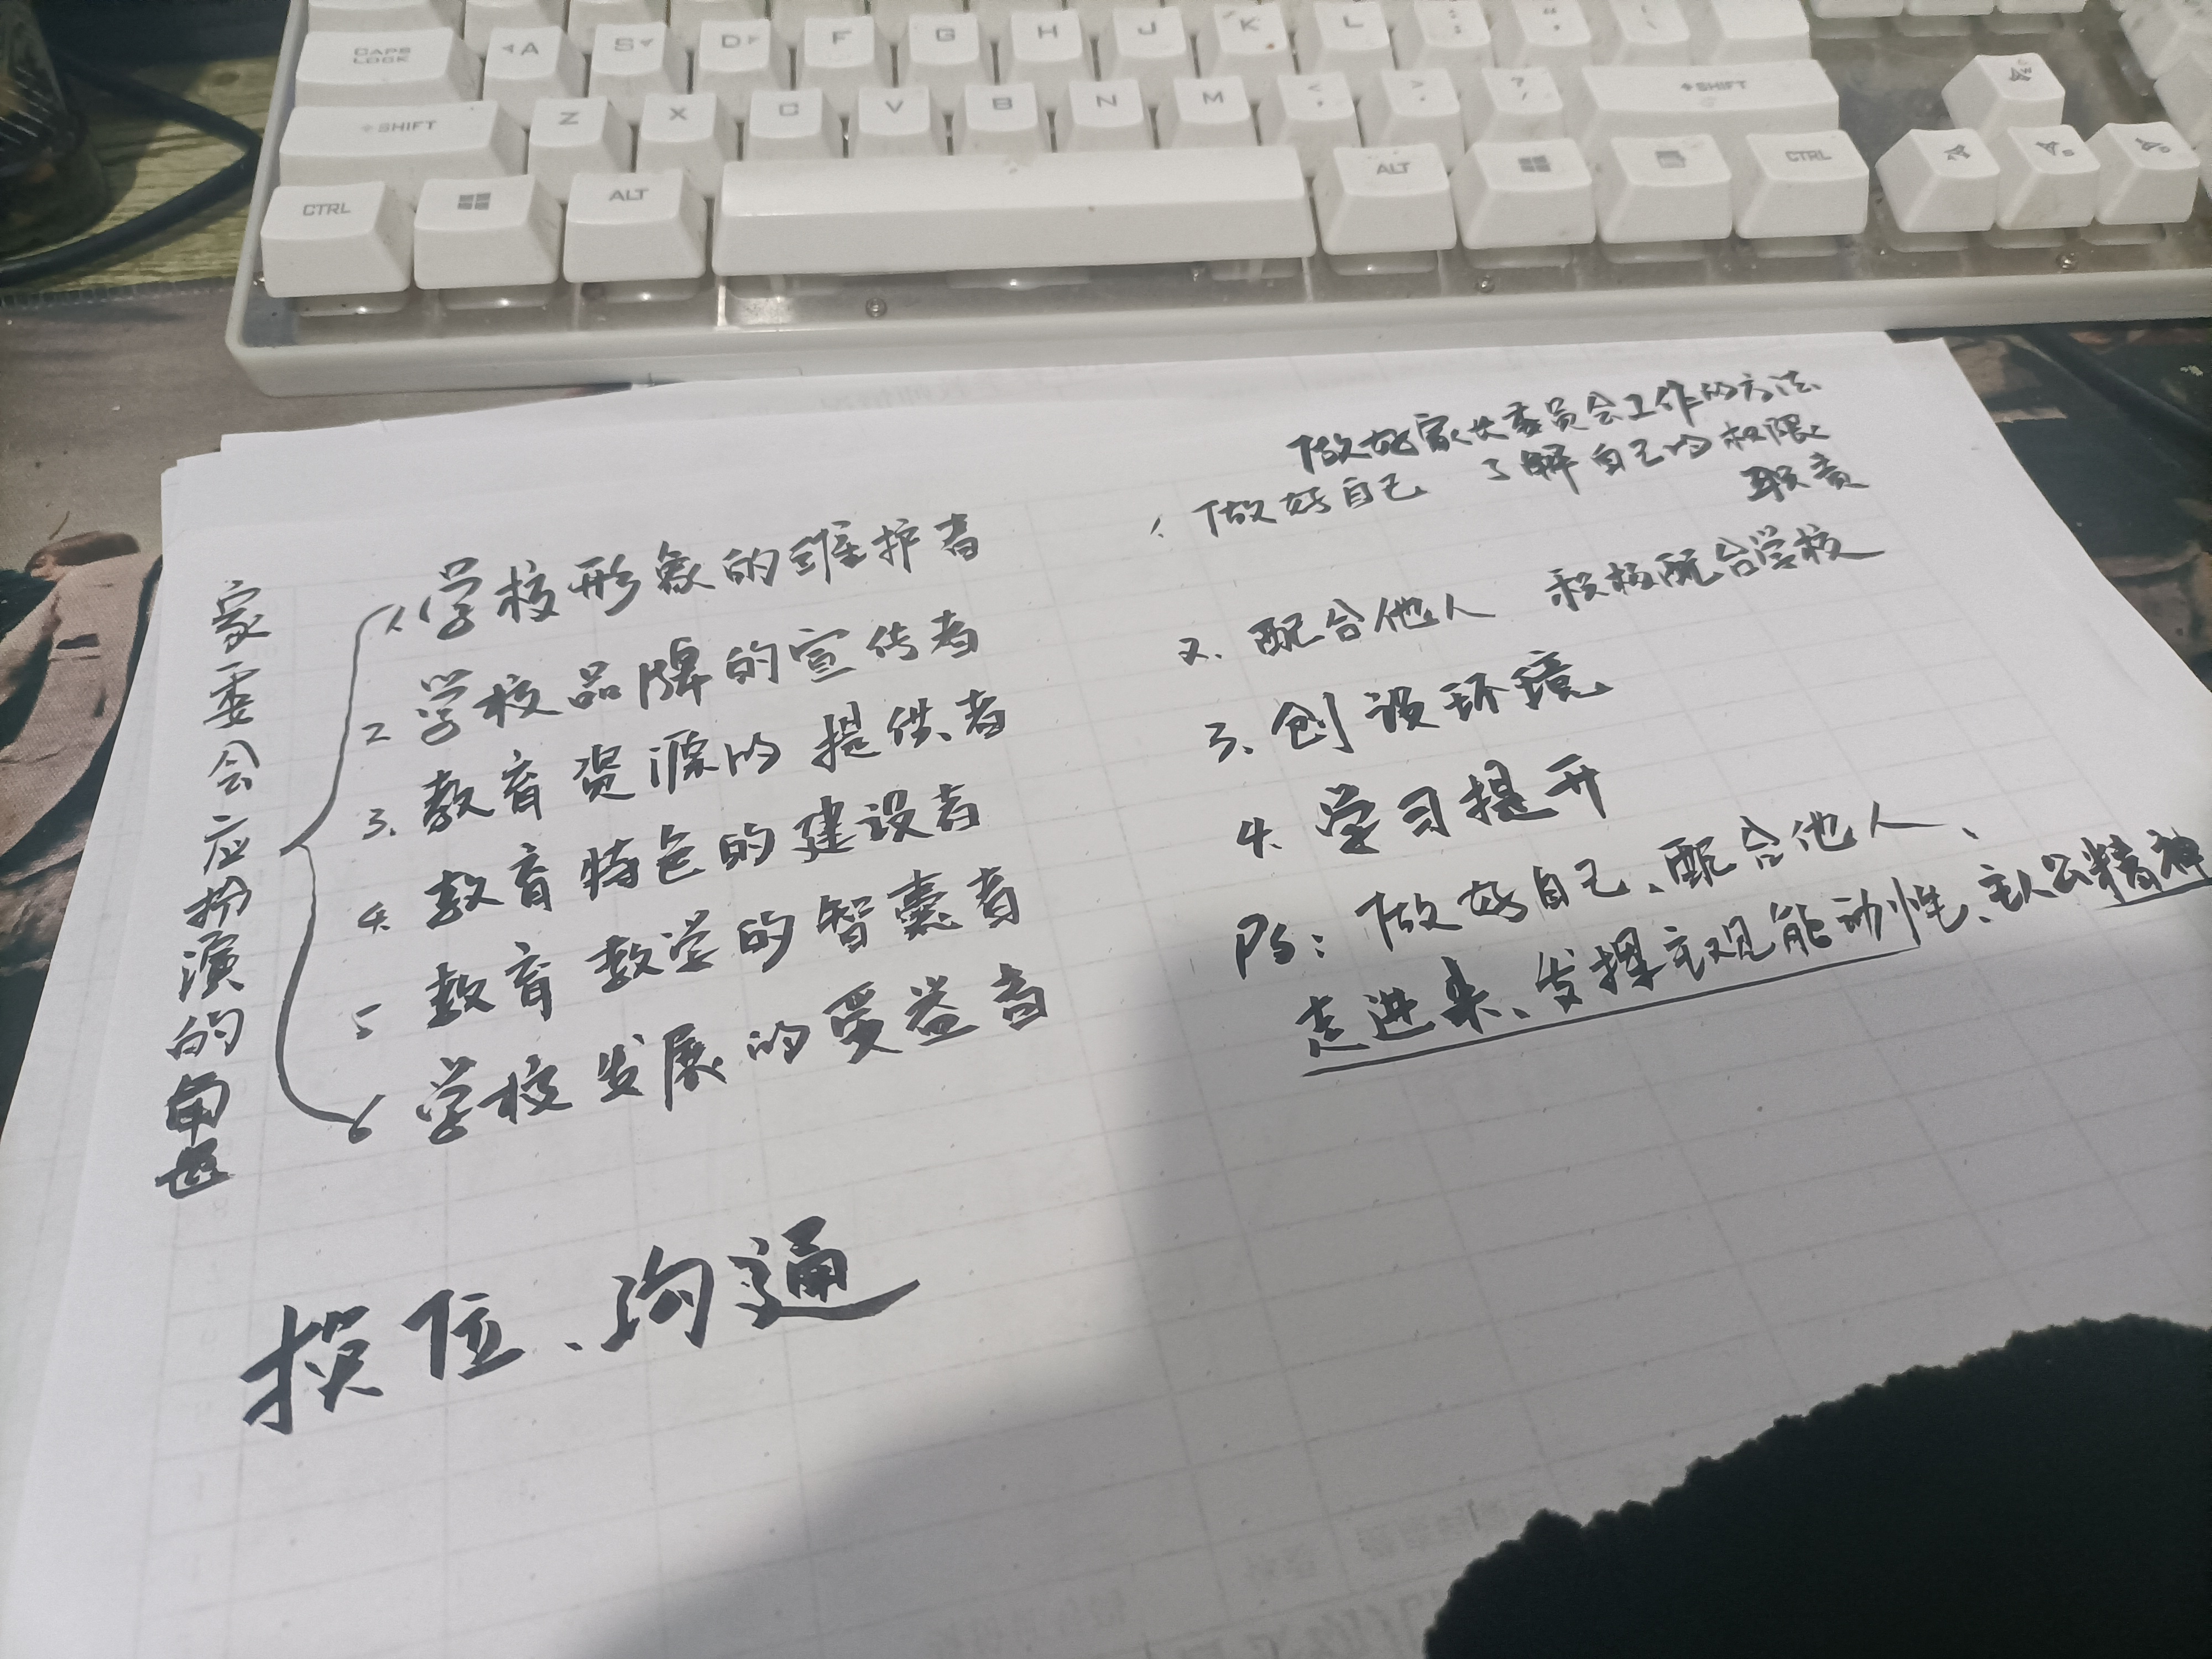 CAPS LOCK A S D F G H J K L
SHIFT Z X C V B N M SHIFT
CTRL ALT ALT CTRL
家委会应扮演的角色
1、学校形象的维护者
2 学校品牌的宣传者
3、教育资源的提供者
4、教育特色的建设者
5 教育教学的智囊者
6 学校发展的受益者
换位、沟通
做好家长委员会工作的方法
1、做好自己 了解自己的权限
职责
2、配合他人 积极配合学校
3、创设环境
4、学习提升
Ps：做好自己、配合他人、
走进来、发挥主观能动性、主人公精神